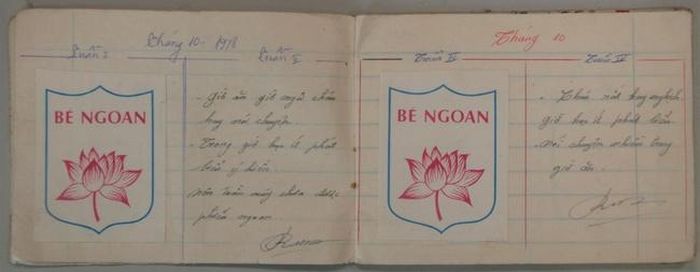 Tháng 10 - 1978
Tuần I
Tuần II
BÉ NGOAN
- Giờ ăn giờ ngủ cháu
hay nói chuyện.
- Trong giờ học ít phát
biểu ý kiến.
nên tuần này chưa được
phiếu ngoan
Tháng 10
Tuần III
Tuần IV
BÉ NGOAN
- Cháu rất hay nghịch
giờ học ít phát biểu
nói chuyện nhiều trong
giờ ăn.